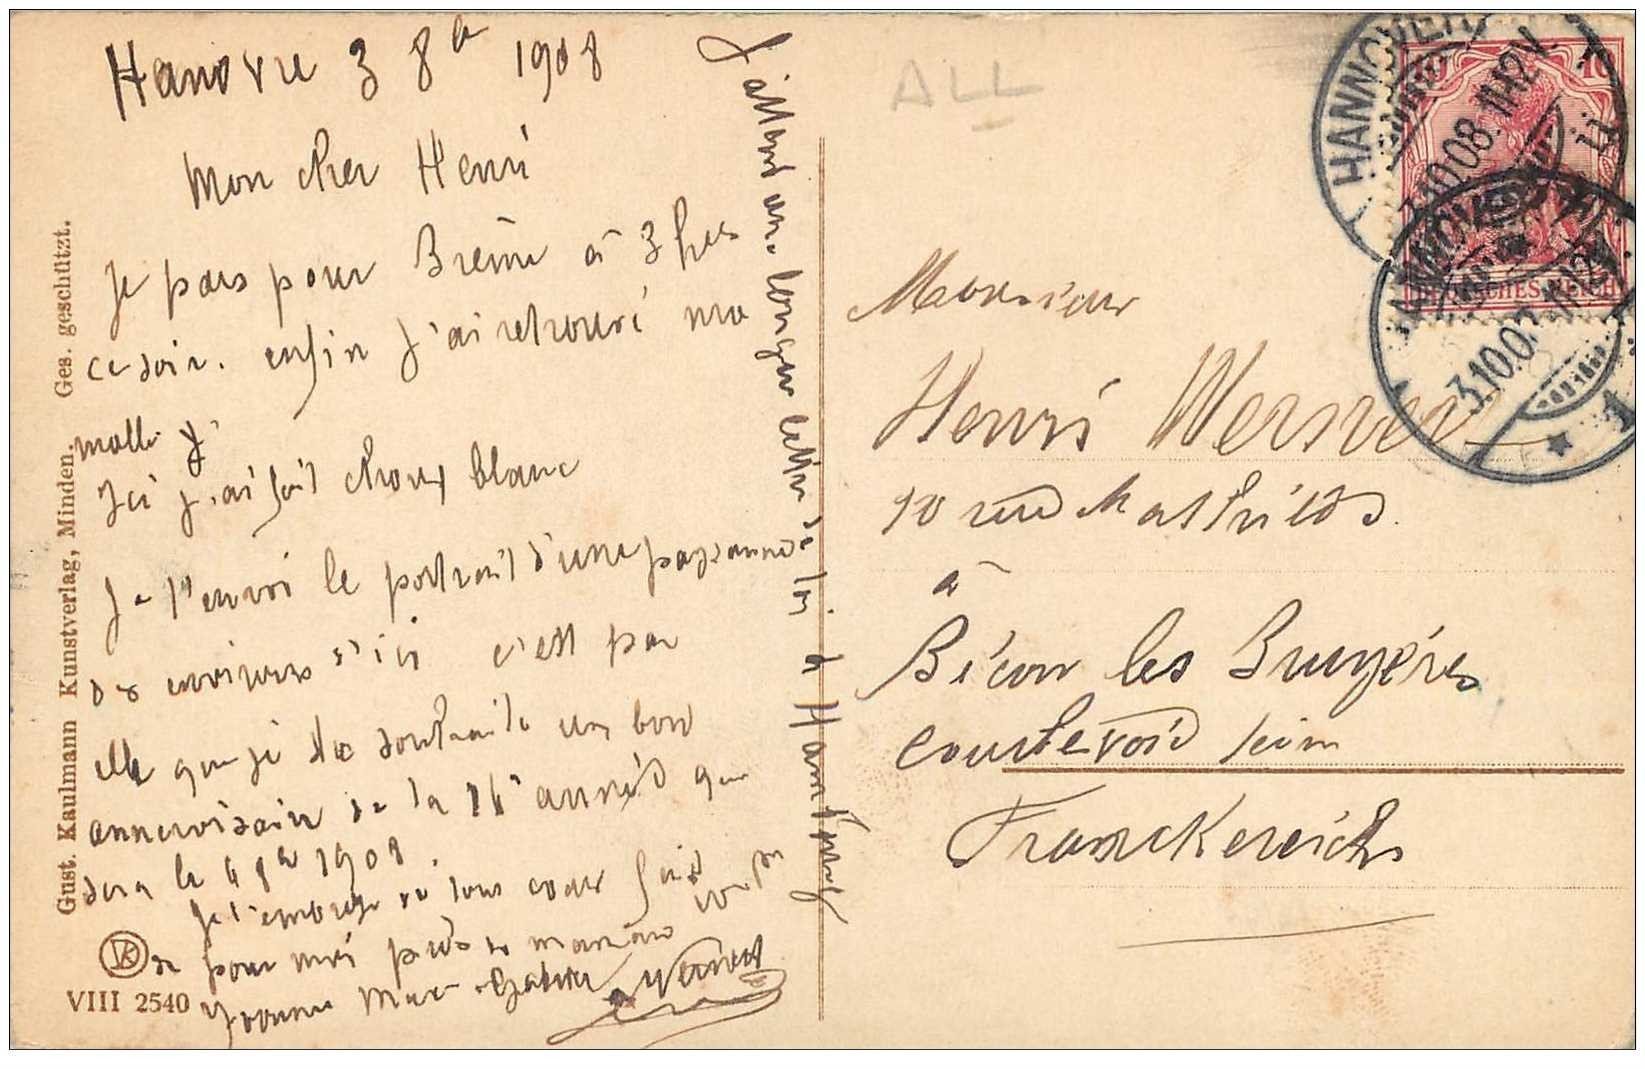 Hanovre 3 8bre 1908
Mon cher Henri
Je pars pour Brème à 3 hes
ce soir. enfin j'ai retrouvé ma
malle j'
Ici j'ai fait choux blanc
Je t'envoi le portrait d'une paysanne
de environs d'ici c'est par
elle que je te souhaite un bon
anniversaire de la 16e année que
sera le 4 8bre 1908.
Je t'embrasse de tous coeur fait
de pour moi près de maman
Yvonne Gabriel Werner
J'attend une longue lettre de toi à Hambourg
Gust. Kaulmann Kunstverlag, Minden. Ges. geschützt.
VIII 2540
ALL
HANNOVER
3.10.08.11-12V.
DEUTSCHES REICH
10
HANNOVER
3.10.08.11-12V.
* 1
Monsieur
Henri Werner
10 rue Mathilde
à
Bécon les Bruyères
Courbevoie Seine
Franckereich